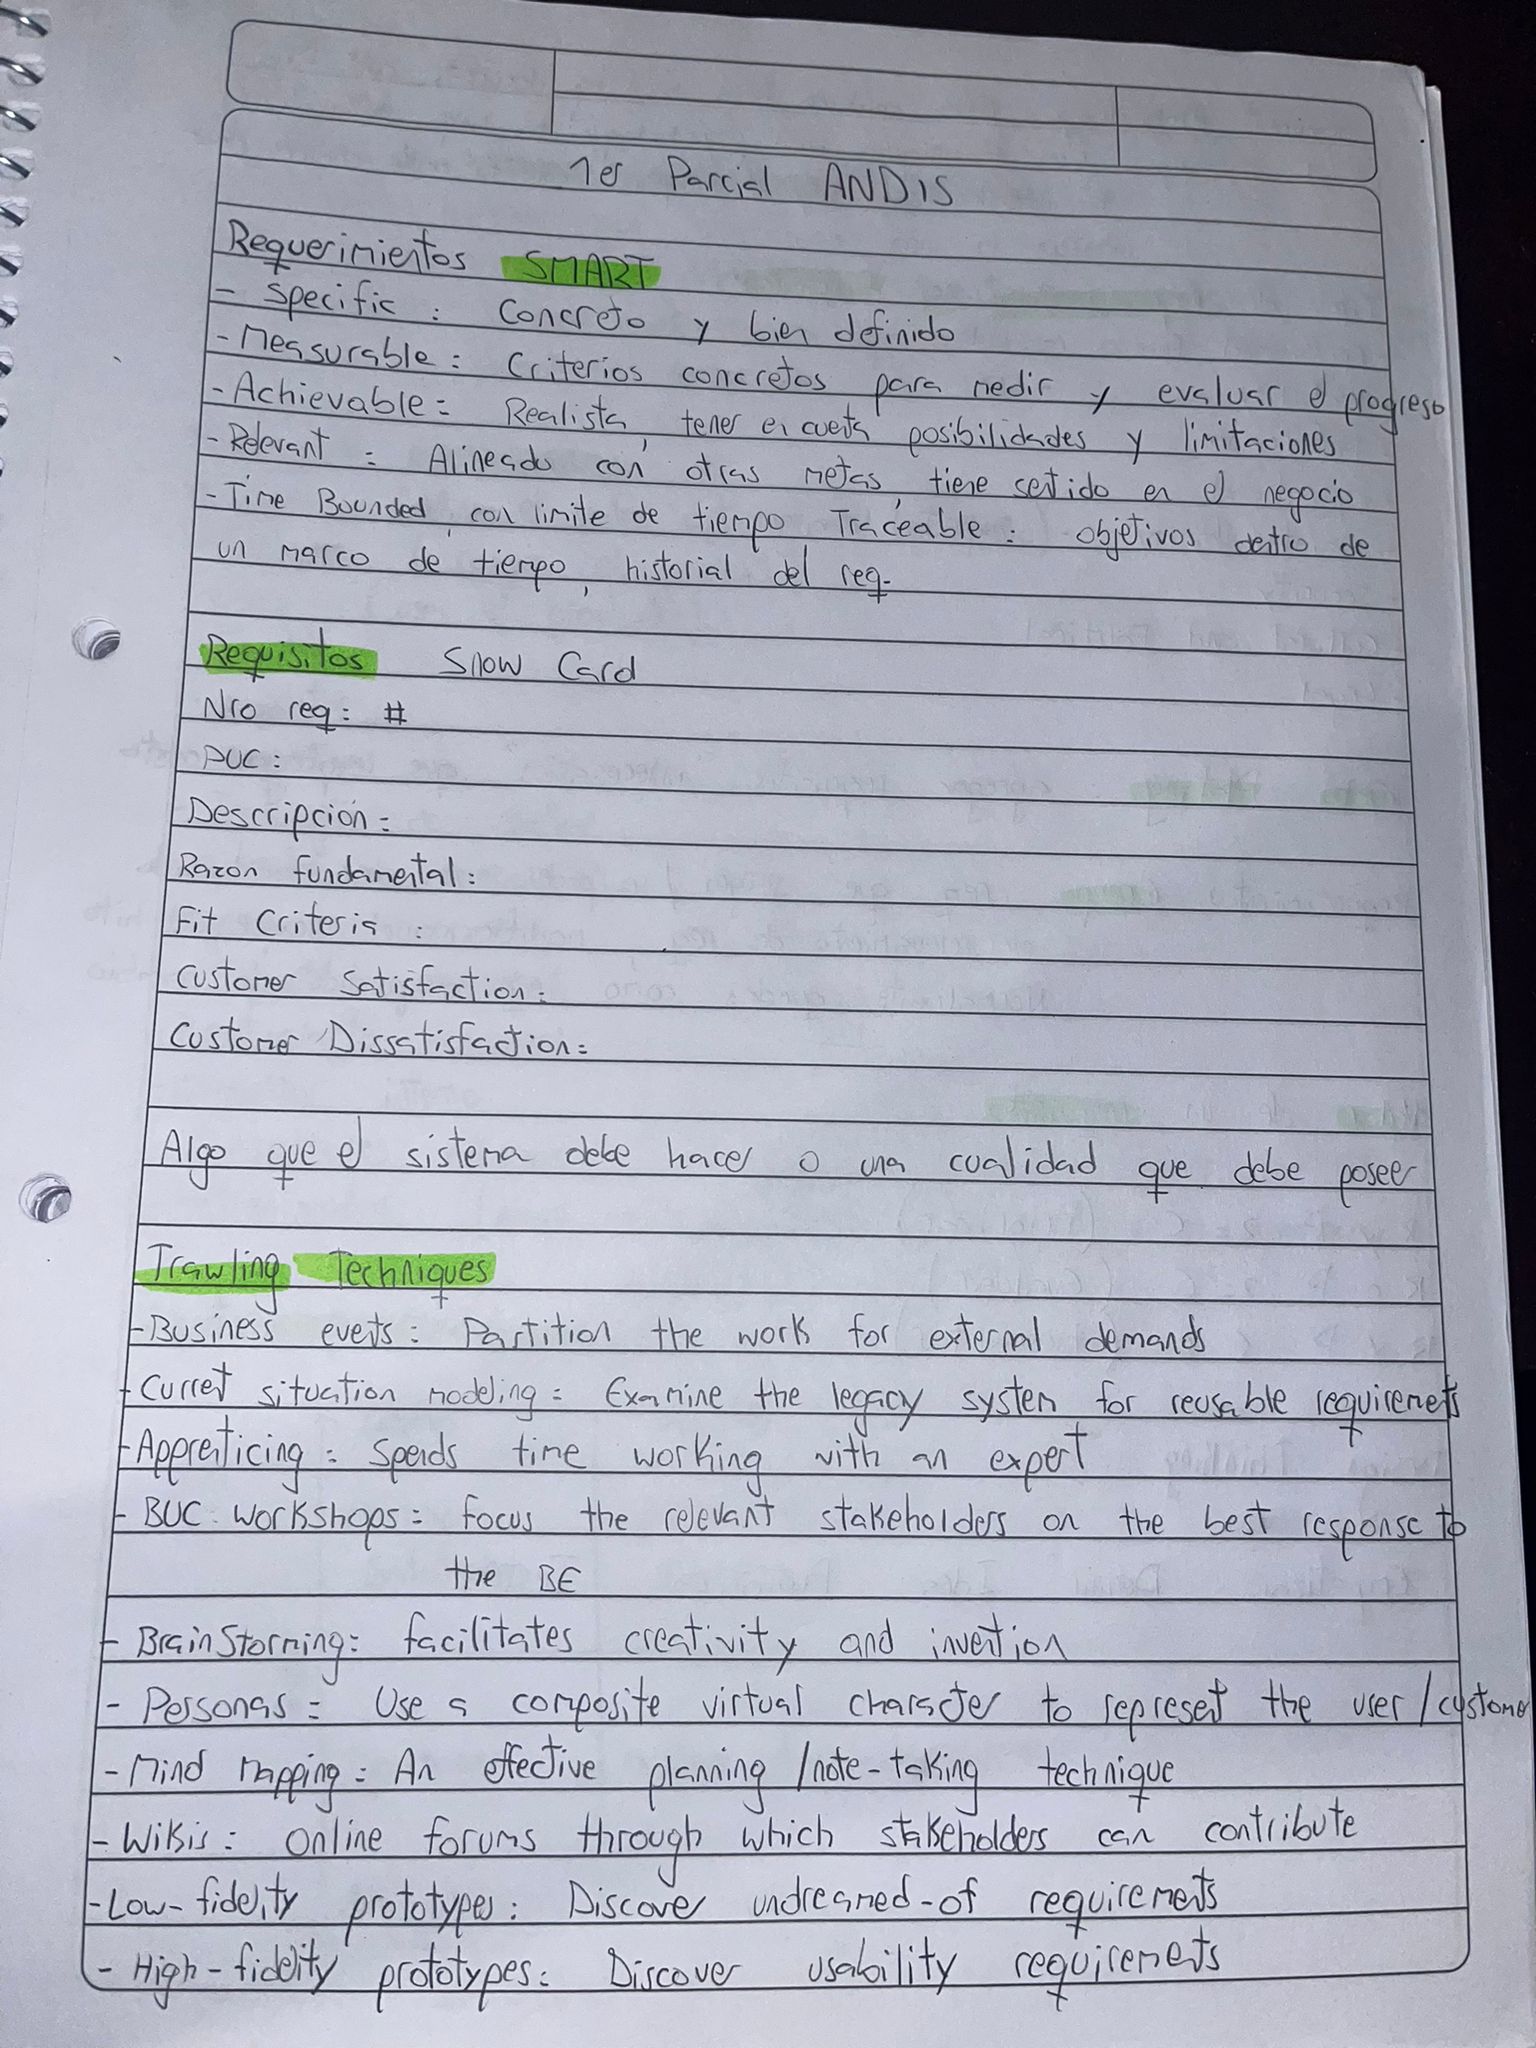 1er Parcial ANDIS
Requerimientos SMART
- Specific : Concreto y bien definido
- Measurable : Criterios concretos para medir y evaluar el progreso
- Achievable : Realista, tener en cuenta posibilidades y limitaciones
- Relevant : Alineado con otras metas, tiene sentido en el negocio
- Time Bounded, con limite de tiempo Traceable : objetivos dentro de
un marco de tiempo, historial del req.
Requisitos Snow Card
Nro req : #
PUC :
Descripción :
Razon fundamental :
Fit Criteria :
Customer Satisfaction :
Customer Dissatisfaction :
Algo que el sistema debe hacer o una cualidad que debe poseer
Trawling Techniques
- Business events : Partition the work for external demands
- Current situation modeling : Examine the legacy system for reusable requirements
- Apprenticing : Spends time working with an expert
- BUC workshops : focus the relevant stakeholders on the best response to
the BE
- BrainStorming : facilitates creativity and invention
- Personas : Use a composite virtual character to represent the user/customer
- Mind Mapping : An effective planning/note-taking technique
- Wikis : Online forums through which stakeholders can contribute
- Low-fidelity prototypes : Discover undreamed-of requirements
- High-fidelity prototypes : Discover usability requirements